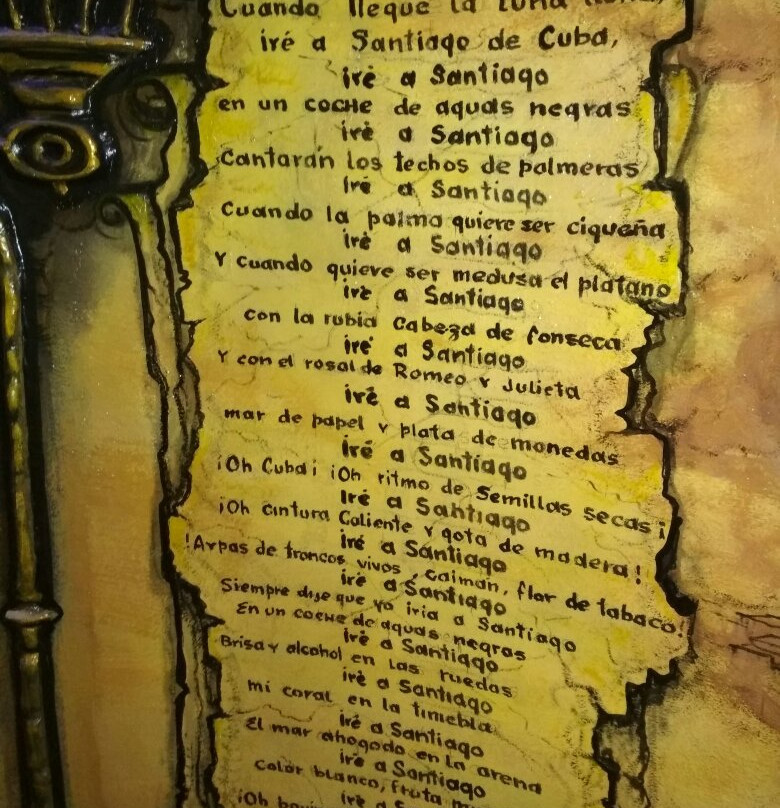 Cuando llegue la luna llena,
iré a Santiago de Cuba,
iré a Santiago
en un coche de aguas negras
iré a Santiago
Cantarán los techos de palmeras
Iré a Santiago
Cuando la palma quiere ser cigueña
iré a Santiago
Y cuando quieve ser medusa el platano
iré a Santiago
con la rubia Cabeza de fonseca
iré a Santiago
Y con el rosal de Romeo y Julieta
iré a Santiago
mar de papel y plata de monedas
Iré a Santiago
¡Oh Cuba¡ ¡Oh ritmo de Semillas secas¡
Iré a Santiago
¡Oh cintura Caliente y gota de madera!
iré a Santiago
!Arpas de troncos vivos, Caiman, flor de tabaco!
iré a Santiago
Siempre dije que yo iria a Santiago
En un coche de aguas negras
iré a Santiago
Brisa y alcohol en las ruedas
iré a Santiago
mi coral en la timiebla
iré a Santiago
El mar ahogodo en la arena
iré a Santiago
Calor blanco, fruta
iré a
¡Oh